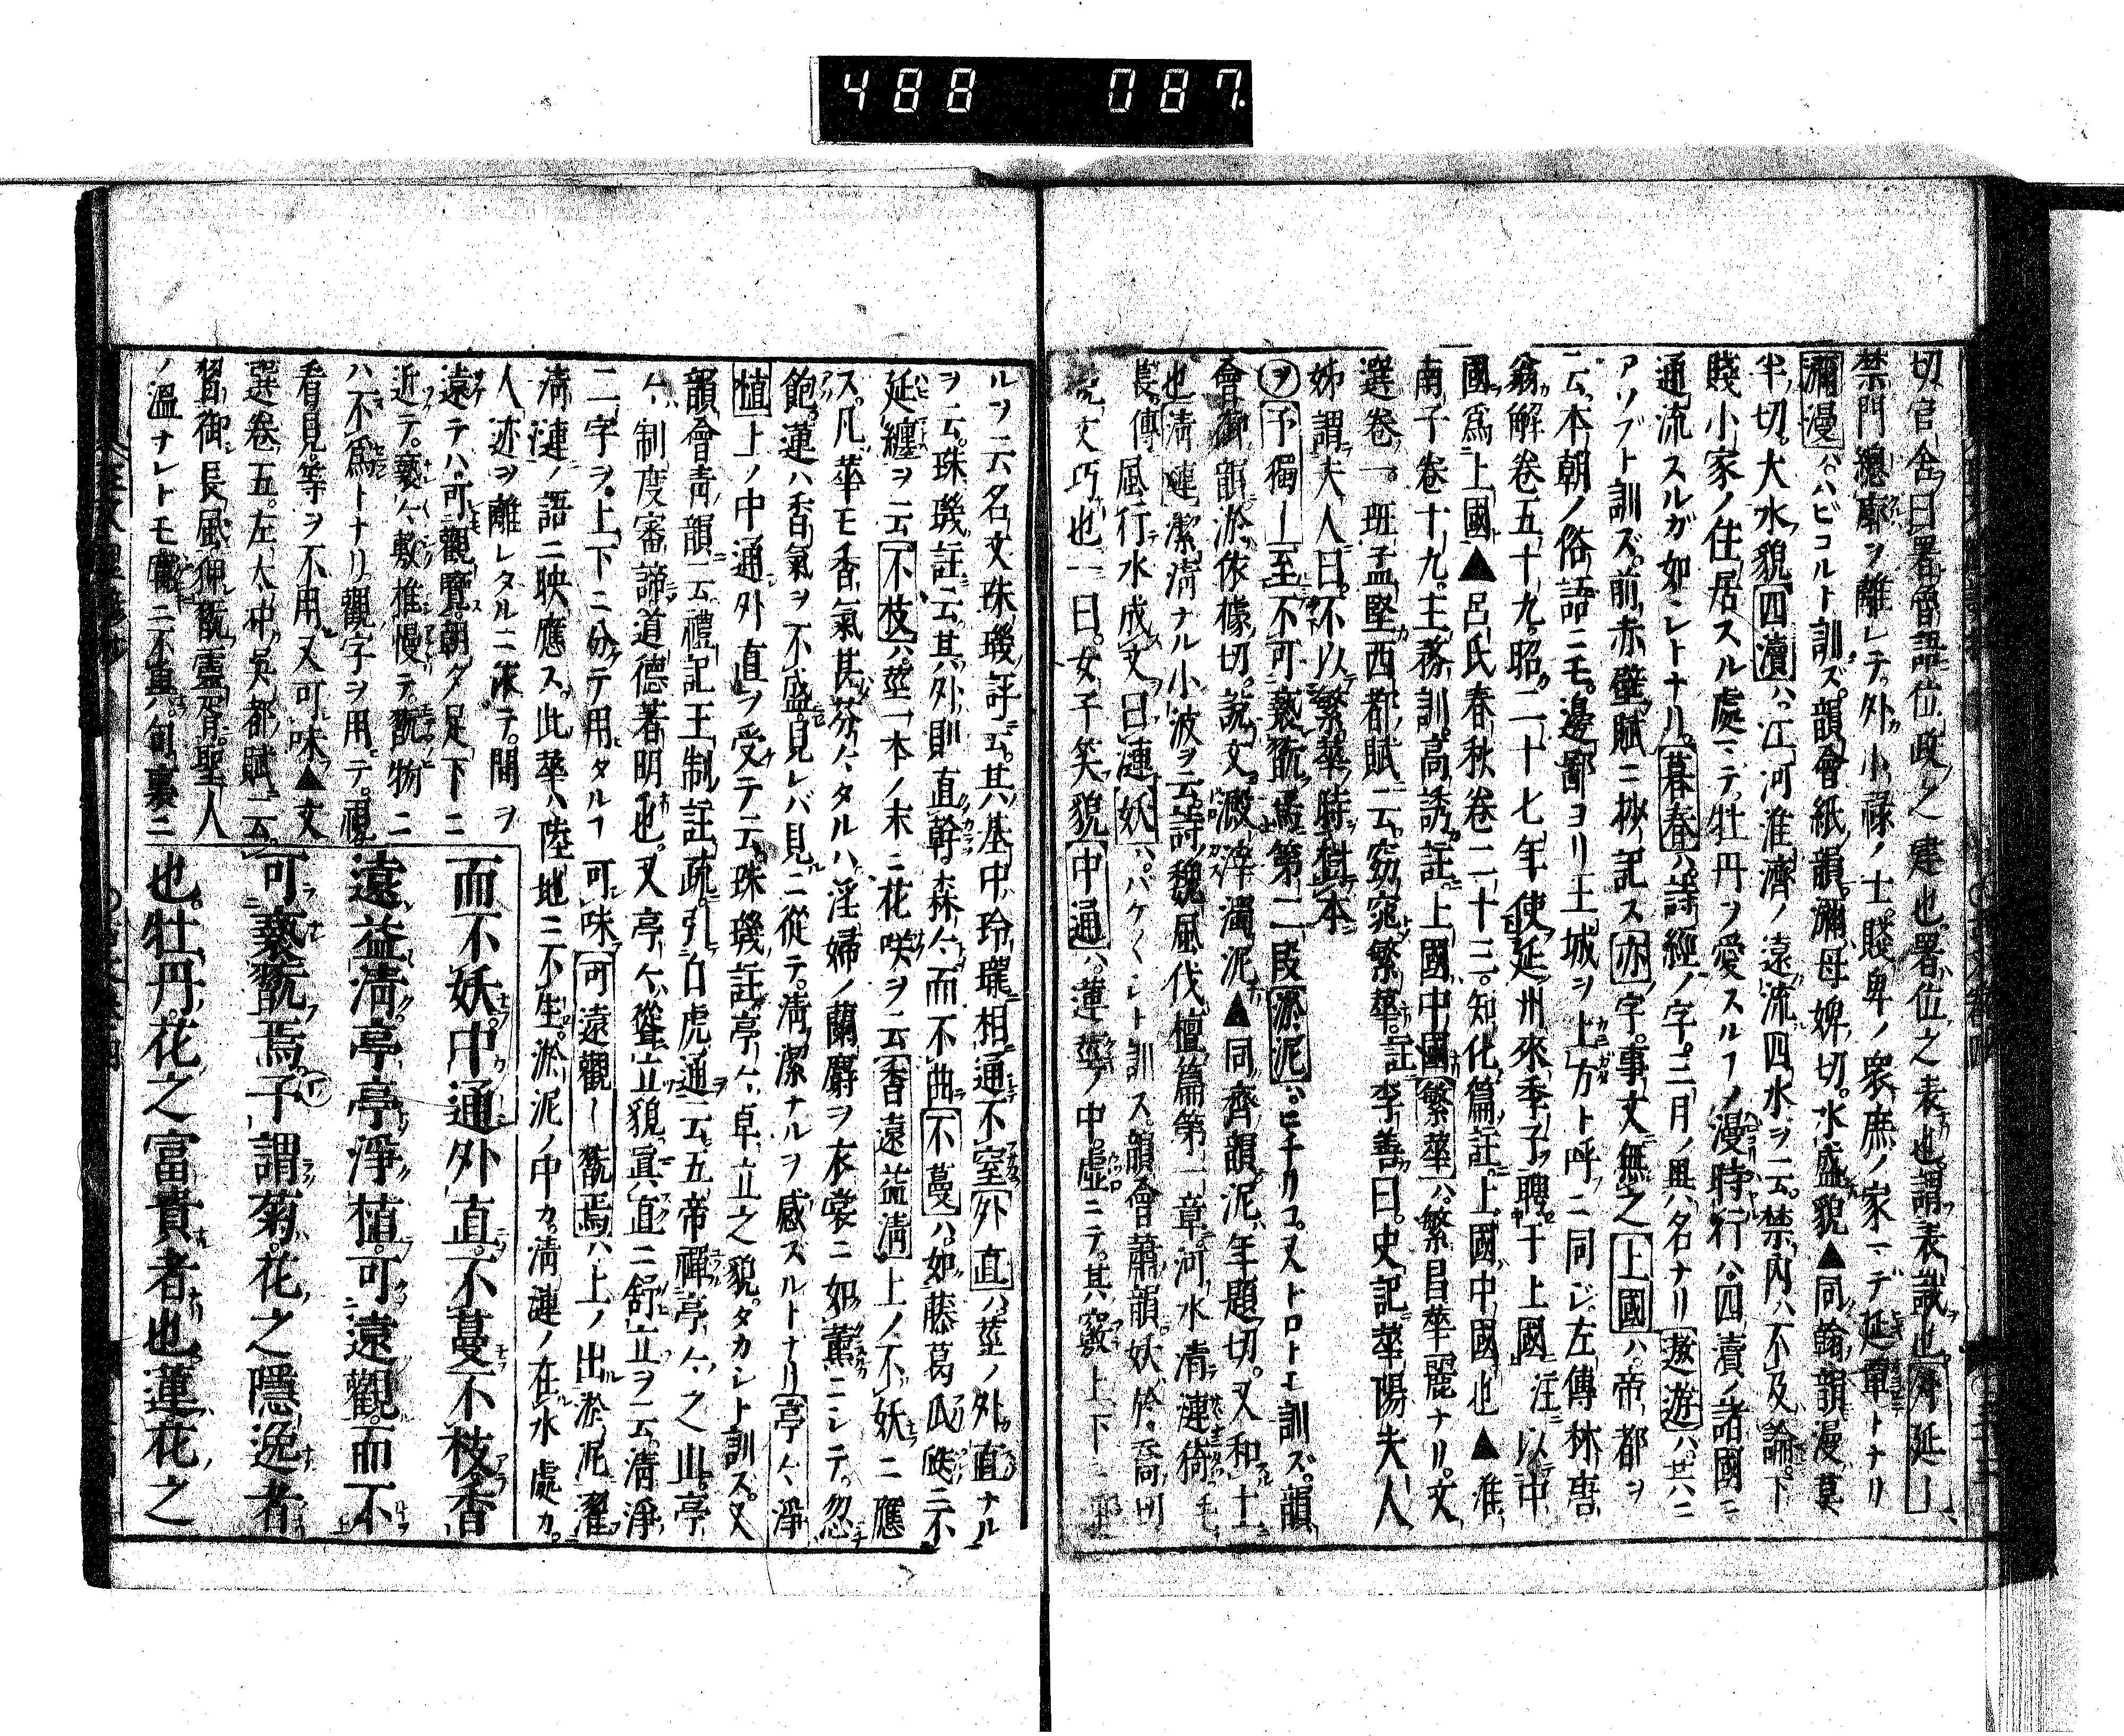 488 087.
切官舎曰署魯語位政之建也署位之表也謂表識也外延｜
禁門總廓ヲ離レテ外小祿ノ士賤卑ノ衆庶ノ家マデ延覃トナリ
瀰漫ハハビコルト訓ズ韻會紙韻瀰母婢切水盛貌▲同翰韻漫莫
半切大水貌四瀆ハ江河淮濟ノ遠流四水ヲ云禁内ハ不及論下
賤小家ノ住居スル處マテ牡丹ヲ愛スルフノ漫時行ハ四瀆ノ諸國ニ
通流スルガ如シトナリ暮春ハ詩經ノ字三月ノ異名ナリ遨遊ハ共ニ
アソブト訓ズ前赤壁賦ニ抄記ス亦字事文無之上國ハ帝都ヲ
云本朝ノ俗語ニモ邊鄙ヨリ王城ヲ上方ト呼ニ同ジ左傳林唐
翁解卷五十九昭二十七年使延州來季子聘于上國注以中
國爲上國▲呂氏春秋卷二十三知化篇註上國中國也▲淮
南子卷十九主務訓高誘註上國中國繁華ハ繁昌華麗ナリ文
選卷一班孟堅西都賦云窈窕繁華註李善曰史記華陽夫人
姊謂夫人曰不以繁華時樹本
ヲ予獨｜至不可褻翫焉第二段淤泥ハヒチリコ又トロトモ訓ズ韻
會御韻淤依據切説文澱滓濁泥▲同齊韻泥年題切又和土
也清漣潔清ナル小波ヲ云詩魏風伐檀篇第一章河水清漣猗
長傳風行水成文曰漣妖ハバケバケシト訓ス韻會蕭韻妖於喬切
文巧也一曰女子笑貌中通ハ蓮莖ノ中虚ニテ其竅上下
ルヲ云名文珠璣評云其基中玲瓏相通不窒外直ハ莖ノ外直ナル
ヲ云珠璣註云其外則直幹森〻而不曲不蔓ハ如藤葛瓜瓞ニ不
延纏ヲ云不枝ハ莖一本ノ末ニ花咲ヲ云香遠益清上ノ不妖ニ應
ス凡華モ香氣甚芬〻タルハ淫婦ノ蘭麝ヲ衣裳ニ如薫ニシテ忽
飽蓮ハ香氣ヲ不盛見レバ見ニ從テ清潔ナルヲ感ズルトナリ亭〻淨
植上ノ中通外直ヲ受テ云珠璣註亭〻卓立之貌タカシト訓ズ又
韻會青韻云禮記王制註疏引白虎通云五帝禪亭〻之山亭
〻制度審諦道德著明也又亭〻聳立貌眞直ニ舒立ヲ云清淨
二字ヲ上下ニ分テ用タルフ可味可遠觀｜翫焉ハ上ノ出淤泥濯
清漣ノ語ニ映應ス此華ハ陸地ニ不生淤泥ノ中カ清漣ノ在水處カ
人迹ヲ離レタルニ咲テ間ヲ
遠テハ可觀覽朝夕足下ニ
近テ褻〻敷推慢テ翫物ニ
ハ不爲トナリ觀字ヲ用テ視
看見等ヲ不用又可味▲文
選卷五左太冲呉都賦云
習御長風狎翫靈胥聖人
ノ温ナレトモ
而不妖中通外直不蔓不枝香
遠益清亭亭淨植可遠觀而不
可褻翫焉予謂菊花之隱逸者
也牡丹花之富貴者也蓮花之